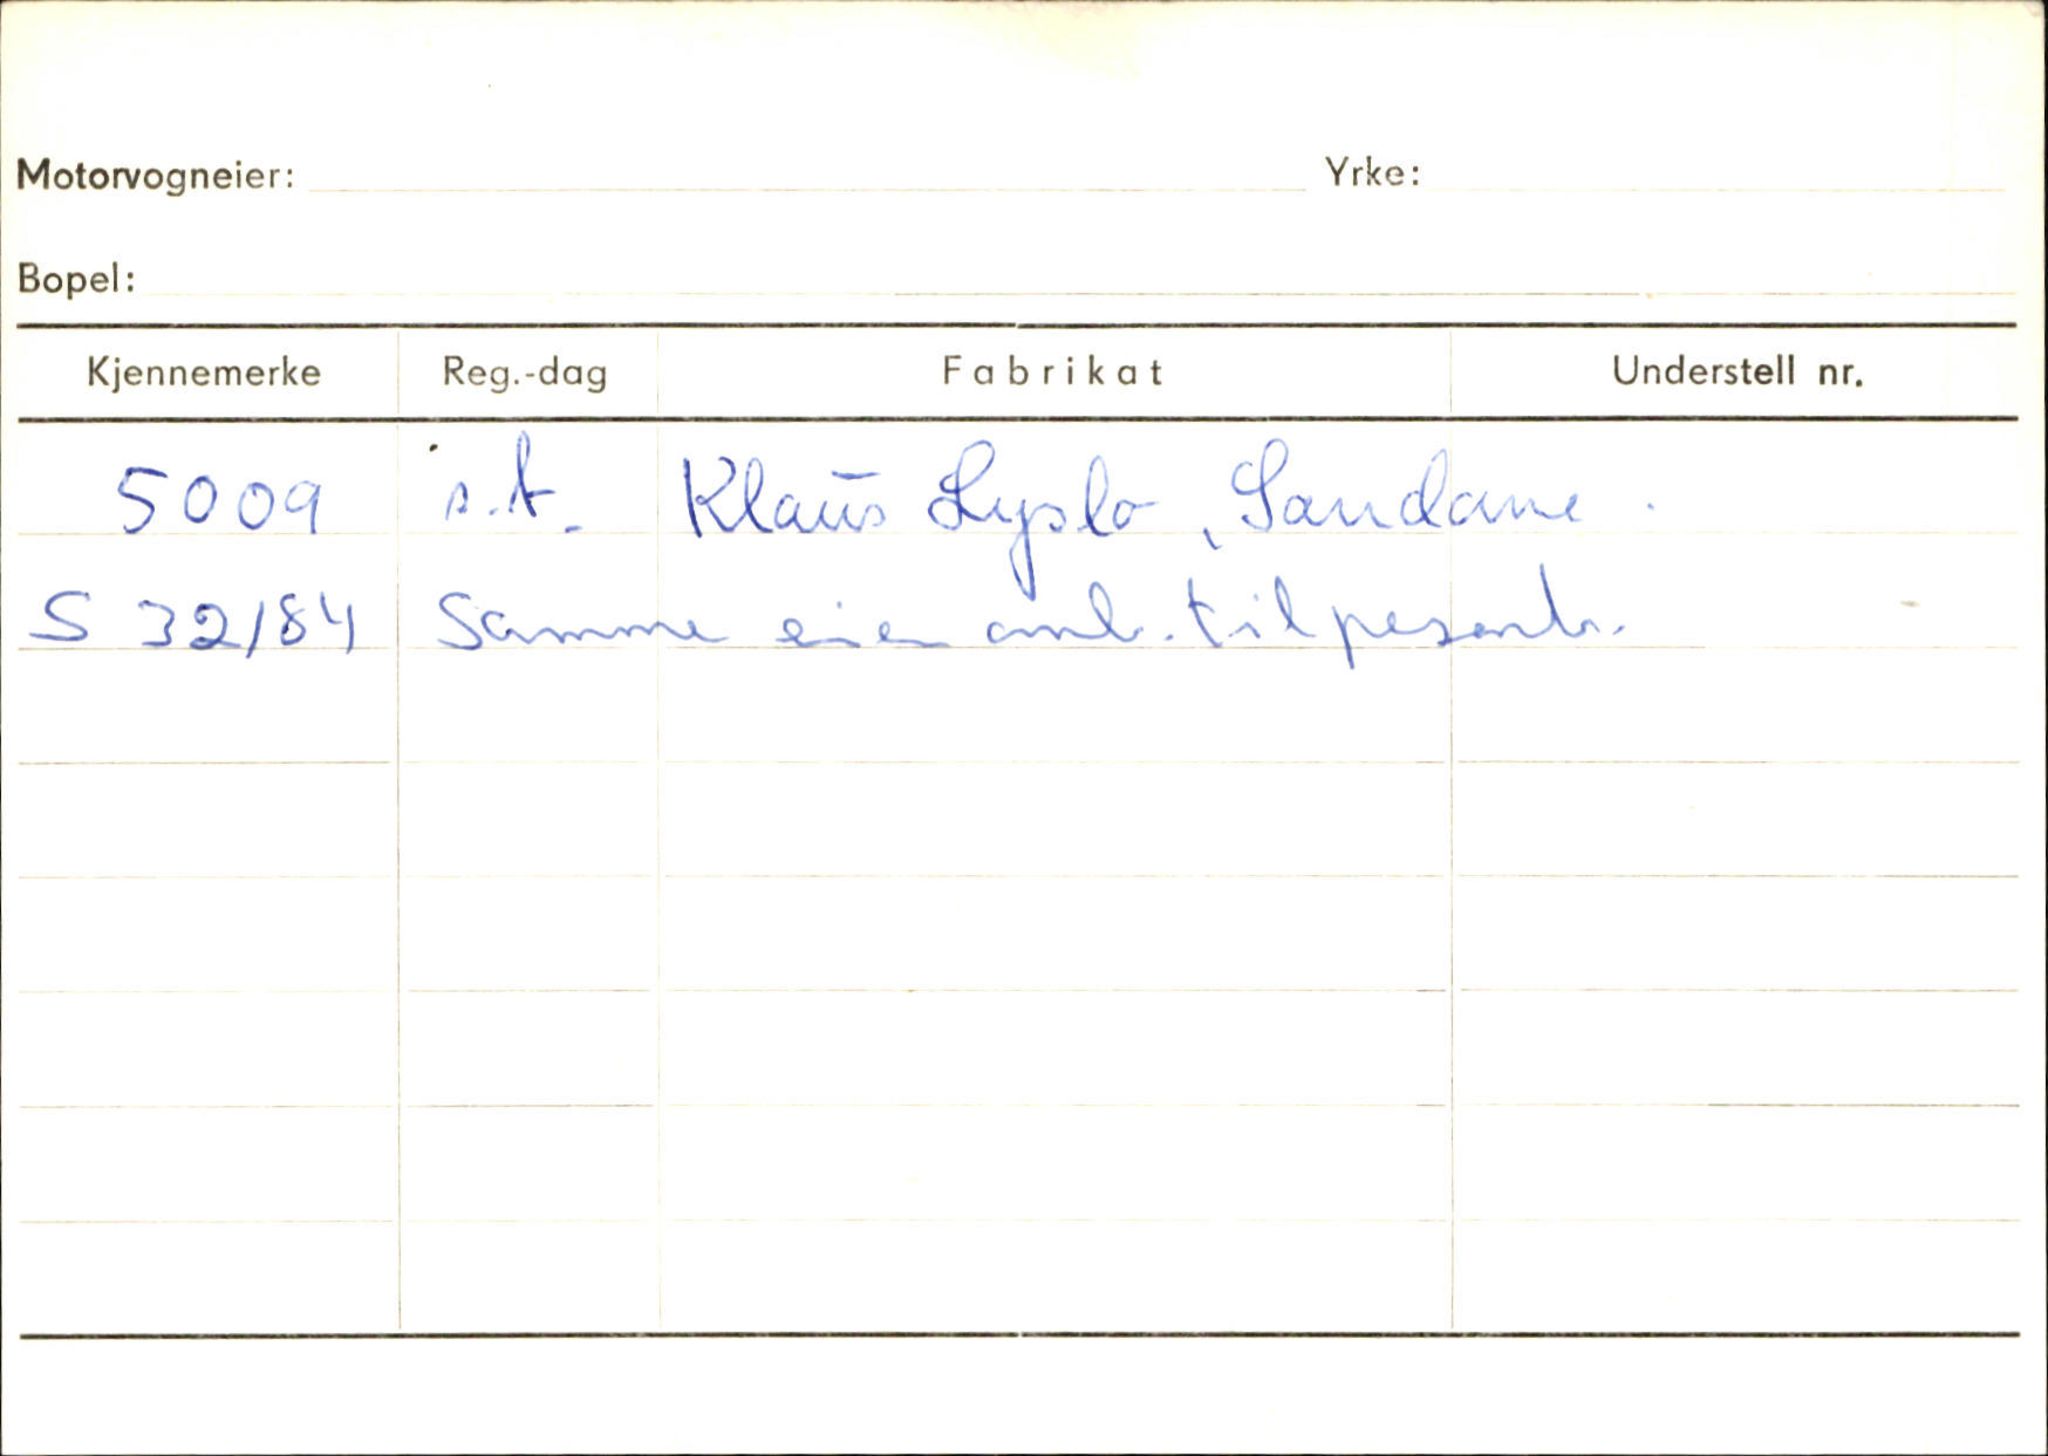 Motorvogneier: Yrke:
Bopel:
Kjennemerke Reg.-dag Fabrikat Understell nr.
5009 s.t. Klaus Lyslo, Sandane.
S 32/84 Samme eier omb. til personb.